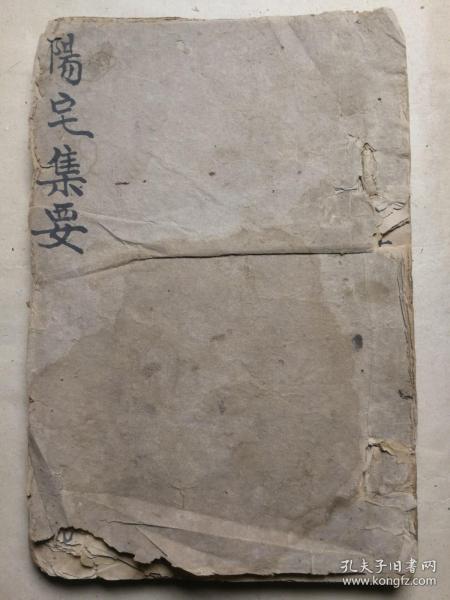 陽宅集要
孔夫子旧书网
www.kongfz.com